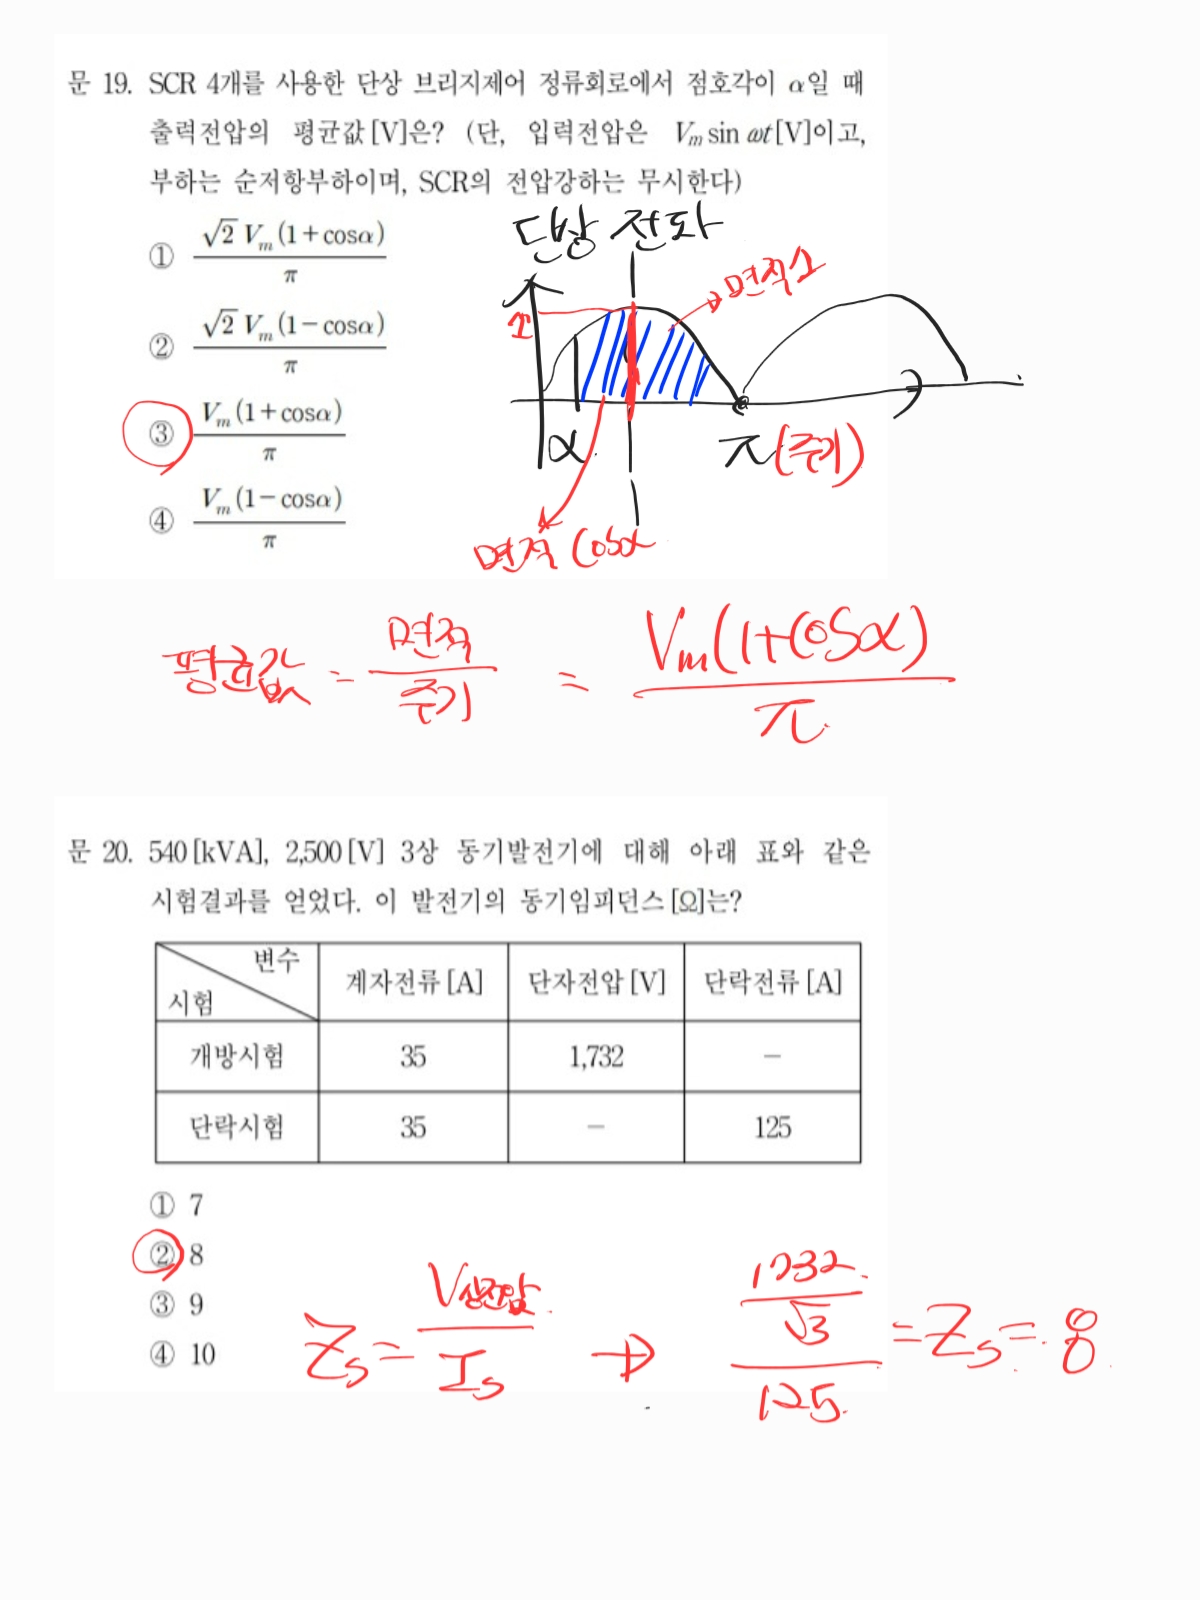 문 19. SCR 4개를 사용한 단상 브리지제어 정류회로에서 점호각이 α일 때
출력전압의 평균값[V]은? (단, 입력전압은 Vₘ sin ωt[V]이고,
부하는 순저항부하이며, SCR의 전압강하는 무시한다)
① √2 Vₘ(1+cosα) / π
② √2 Vₘ(1−cosα) / π
③ Vₘ(1+cosα) / π
④ Vₘ(1−cosα) / π
단상 전파
면적 1
1
α
π (주기)
면적 cosα
평균값 = 면적 / 주기 = Vₘ(1+cosα) / π
문 20. 540[kVA], 2,500[V] 3상 동기발전기에 대해 아래 표와 같은
시험결과를 얻었다. 이 발전기의 동기임피던스[Ω]는?
변수
시험
계자전류[A] 단자전압[V] 단락전류[A]
개방시험 35 1,732 −
단락시험 35 − 125
① 7
② 8
③ 9
④ 10
Zs = V상전압 / Is → (1732 / √3) / 125 = Zs = 8